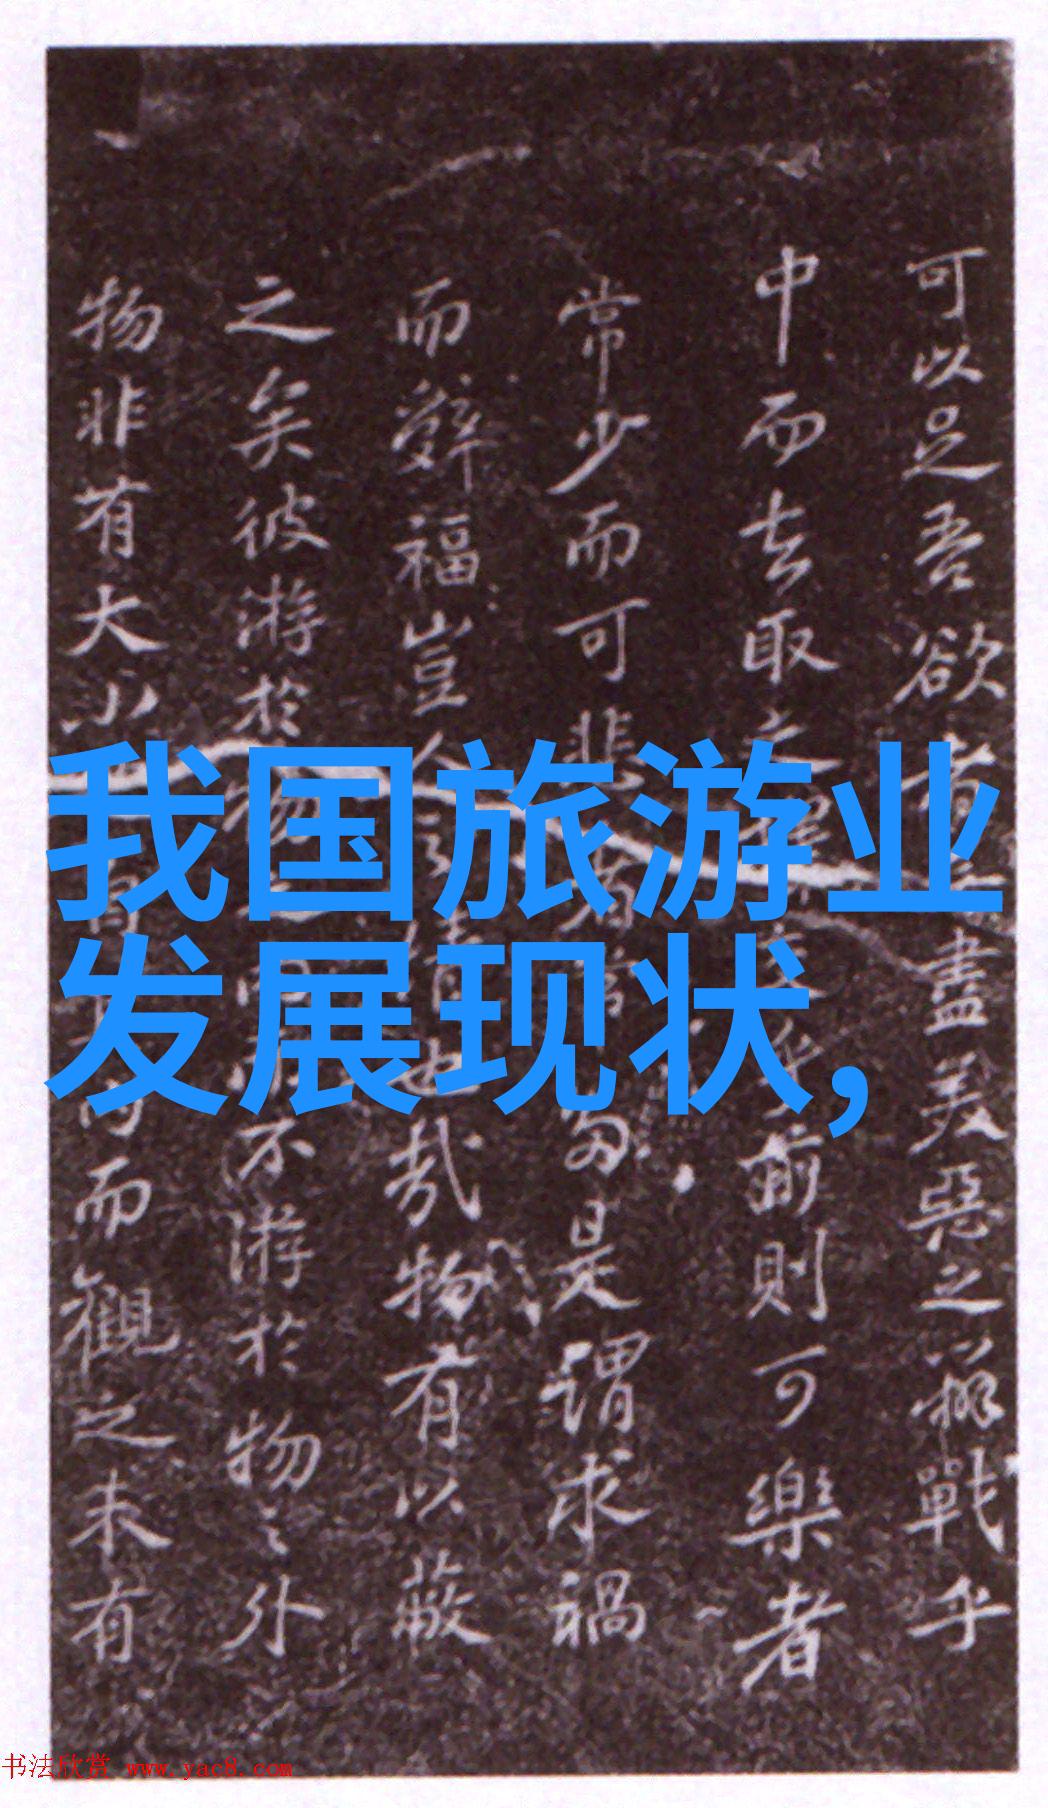 可以足吾欲者盡美惡之辨戰乎
中而去取之擇交乎前則可樂者
常少而可悲者常多是謂求禍
而辭福豈人之情也哉物有以蔽
之矣彼游於物不游於物之外
物非有大小自而觀之未有
我国旅游业
发展现状,
书法欣赏 www.yac8.com